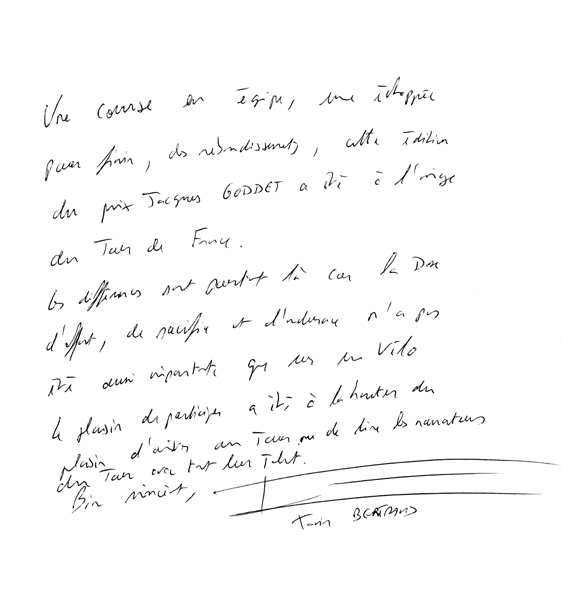 Une course en équipe, une échappée
pour finir, des rebondissements, cette édition
du prix Jacques GODDET a été à l'image
du Tour de France.
Les différences sont pourtant là car la Dose
d'effort, de sacrifice et d'endurance n'a pas
été aussi importante que sur un Vélo
Le plaisir de participer a été à la hauteur du
plaisir d'assister au Tour ou de lire les narrateurs
du Tour avec tout leur Talent.
Bien sincèrement,
BERTRAND